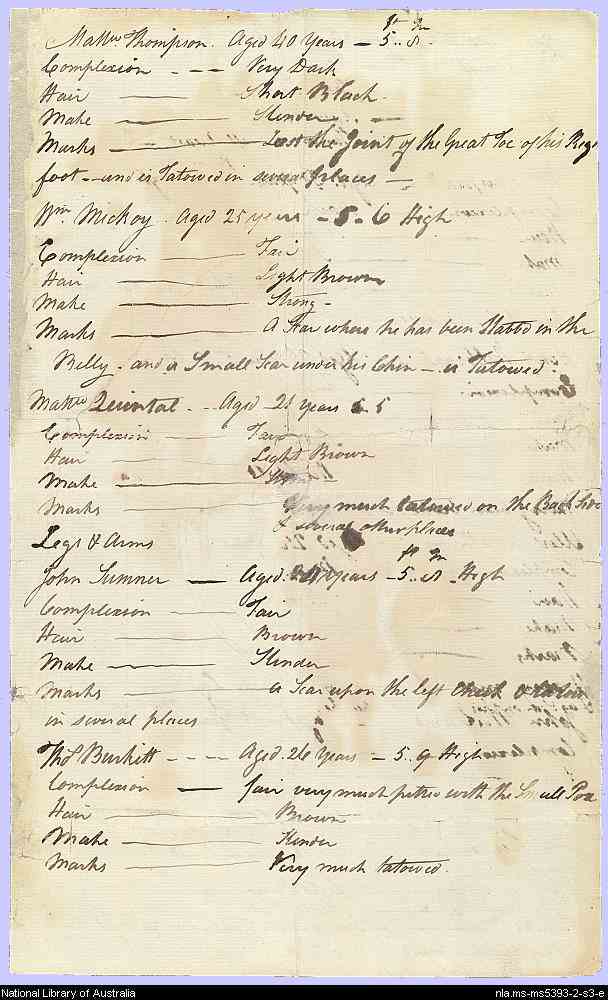 Mattw Thompson. Aged 40 Years — 5 ft.. 8 In.
Complexion - - - Very Dark
Hair — Short Black.
Make — Slender - - -
Marks — Lost the Joint of the Great Toe of his Right
foot — and is Tatowed in several places —
Wm. Mickoy. Aged 25 years — 5 - 6 High
Complexion — Fair
Hair — Light Brown
Make — Strong -
Marks — A Scar where he has been Stabbd in the
Belly - and a Small Scar under his Chin — is Tatowed.
Mattw Quintal - - Aged 21 years 5 5
Complexion — Fair
Hair — Light Brown
Make —
Marks — Very much tatowed on the Back Side
& several other places
Legs & Arms
John Sumner — Aged 24 years — 5 ft.. 8 In. High
Complexion — Fair
Hair — Brown
Make — Slender
Marks — a Scar upon the left Cheek &
in several places
Thos Burkitt - - - Aged. 26 Years — 5.. 9 High
Complexion — fair very much pitted with the Small Pox
Hair — Brown
Make — Slender
Marks — Very much tatowed.
National Library of Australia
nla.ms-ms5393-2-s3-e